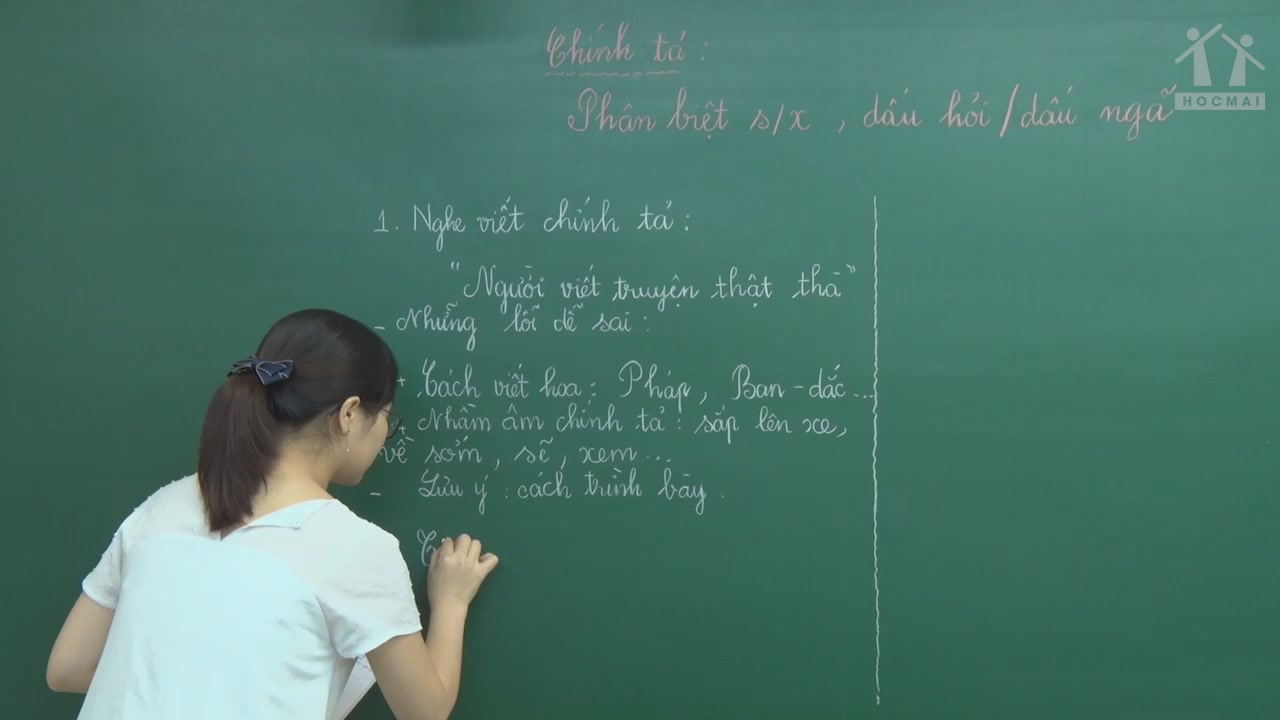 Chính tả :
Phân biệt s/x , dấu hỏi / dấu ngã
HOCMAI
1. Nghe viết chính tả :
"Người viết truyện thật thà"
- Những lỗi dễ sai :
+ Cách viết hoa : Pháp, Ban-dắc...
+ Nhầm âm chính tả : sắp lên xe,
về sớm, sẽ, xem...
- Lưu ý : cách trình bày .